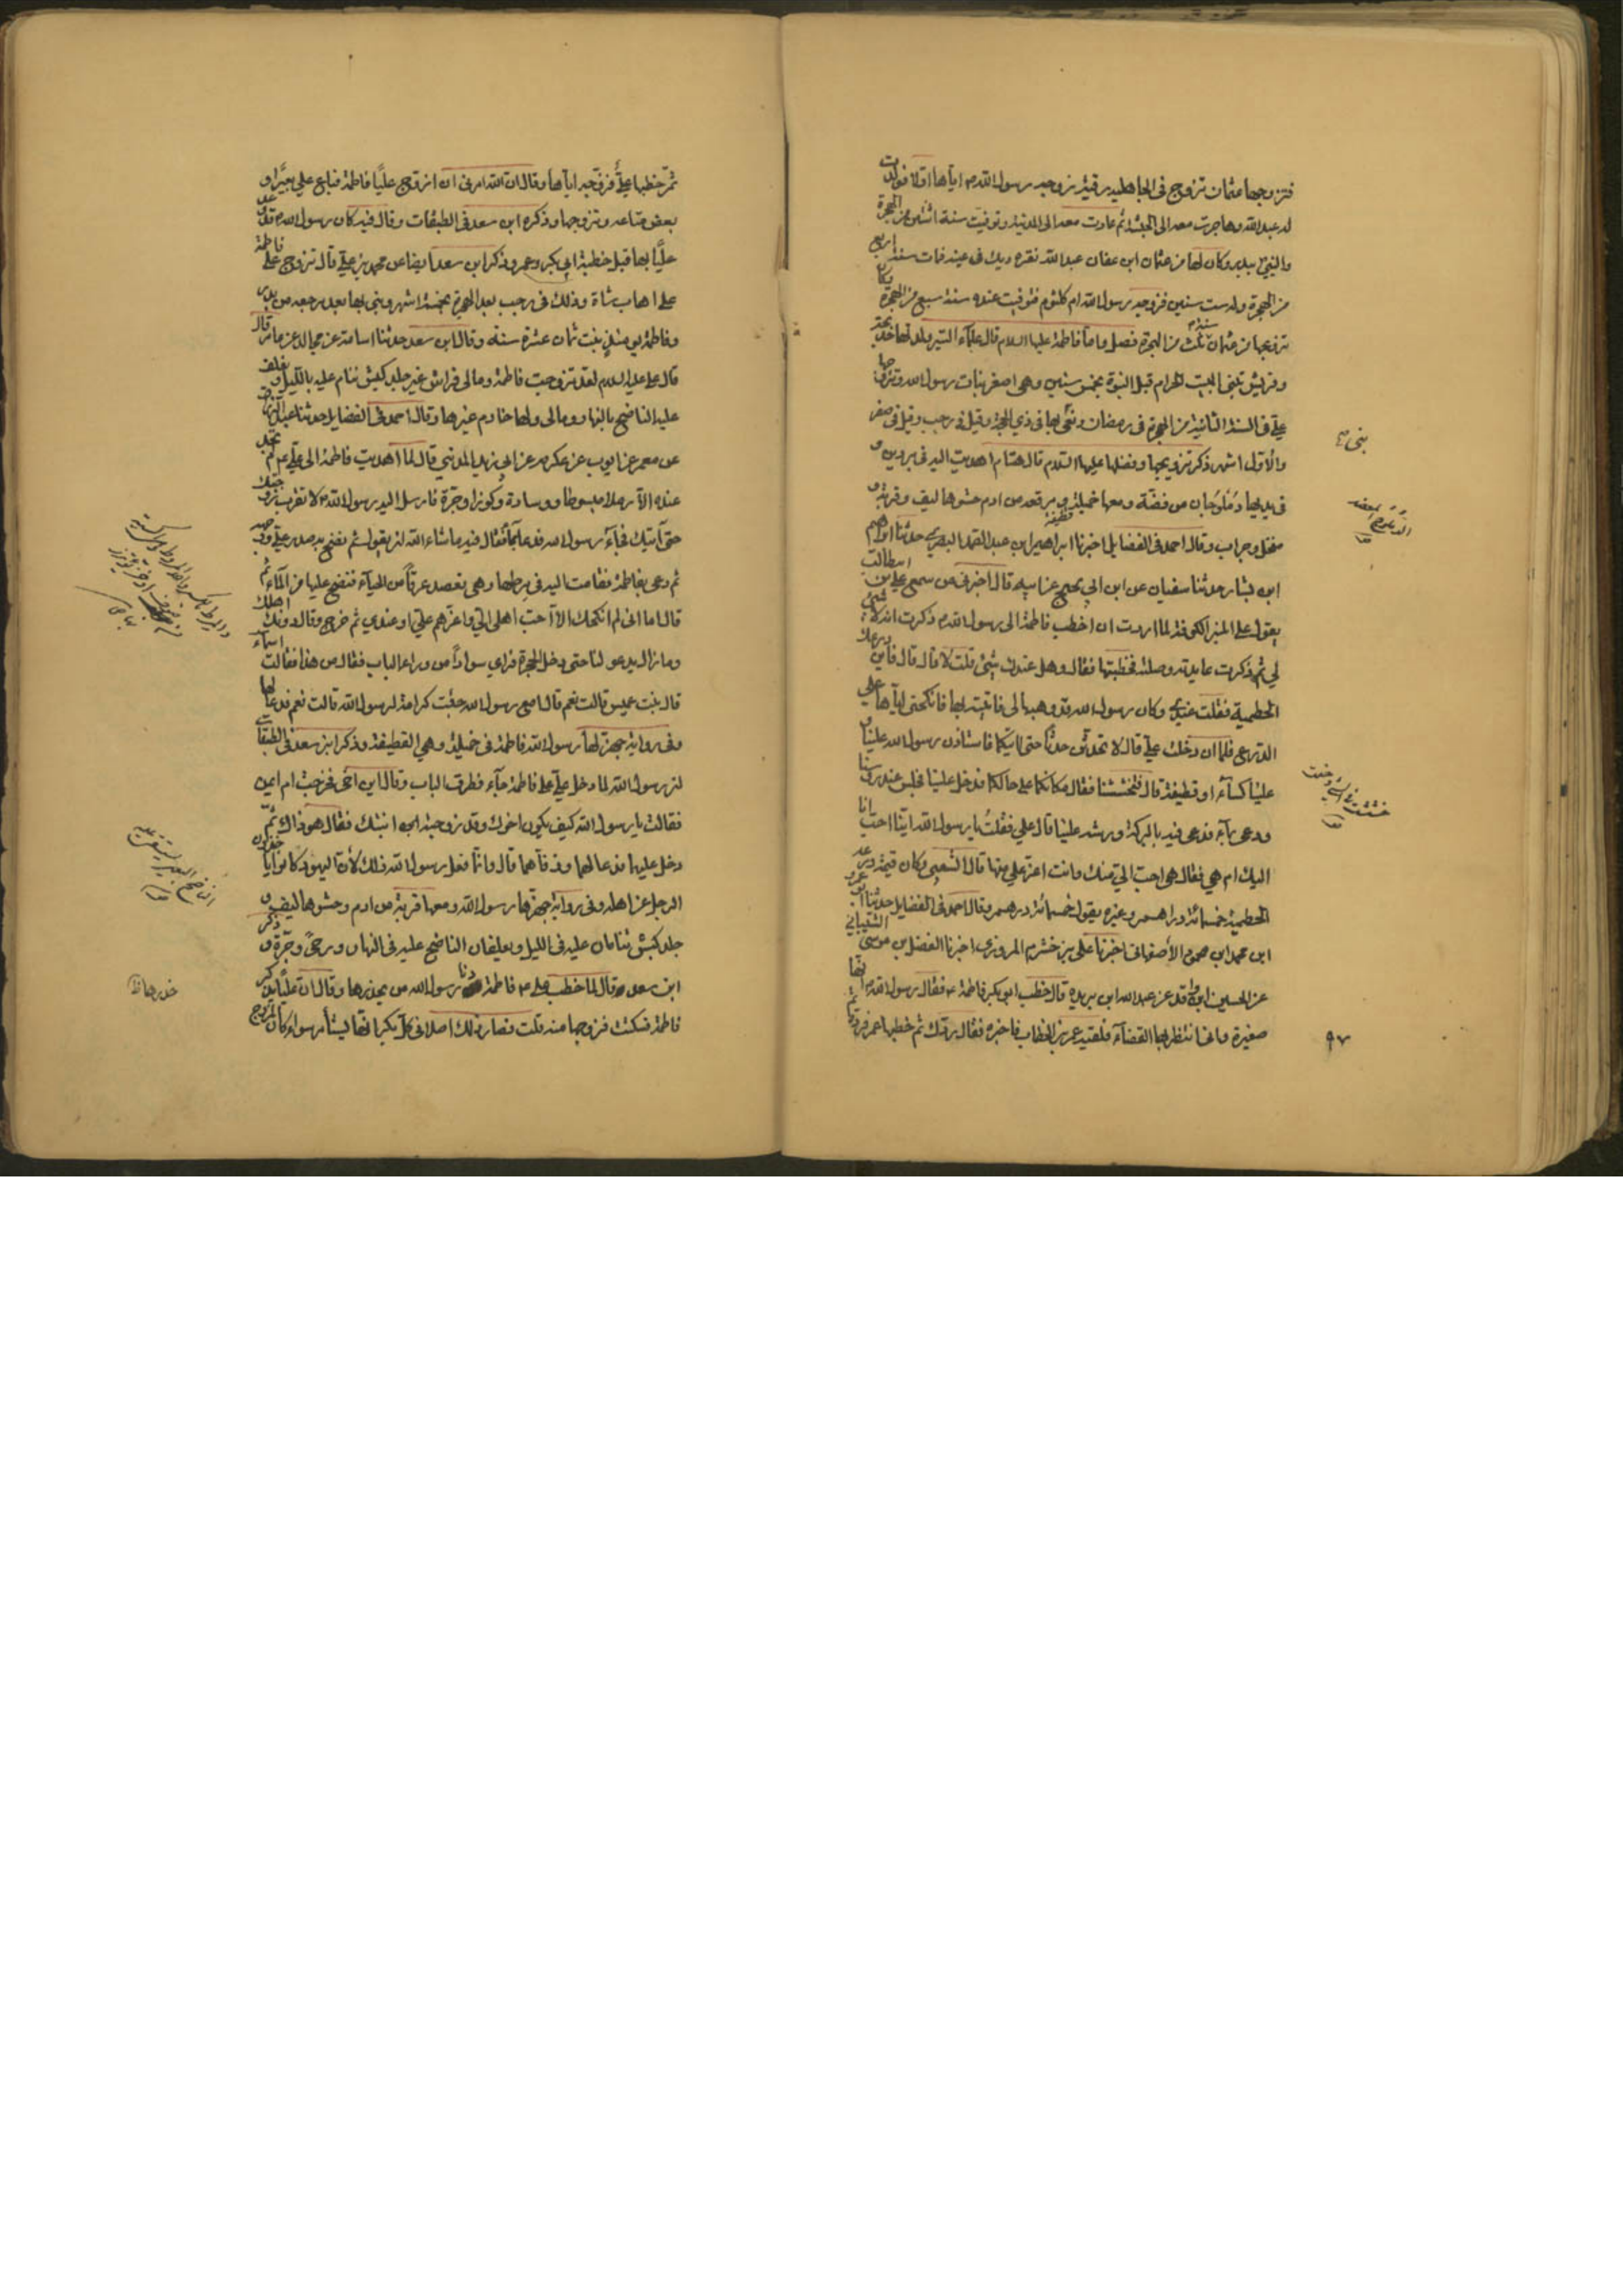 فتزوجها عثمان تزوج فى الجاهلية رقية زوجه رسول الله م اياها اولا فولدت
له عبدالله وهاجرت معه الى الحبشة ثم عادت معه الى المدينة وتوفيت سنة اثنتين من الهجرة
والنبي ببدر وكان لها من عثمان ابن عفان عبدالله نقره ديك فى عينه فمات سنة اربع
من الهجرة وله ست سنين فزوجه رسول الله ام كلثوم فتوفيت عنده سنة سبع من الهجرة وكان
تزوجها من عثمان سنة ثلث من الهجرة فصل واما فاطمة عليها السلام قال علماء السير ولدتها خديجة
وقريش تبنى البيت الحرام قبل النبوة بخمس سنين وهى اصغر بنات رسول الله وتزوجها
علي فى السنة الثانية من الهجرة فى رمضان وبنى بها فى ذي الحجة وقيل فى رجب وقيل فى صفر
والاول اشهر ذكر تزويجها وفضلها عليها السلام قال هشام اهديت اليه فى بردين و
فى يديها دملوجان من فضة ومعها خميلة ومرفقة من ادم حشوها ليف وقربة و
منخل وجراب وقال احمد فى الفضايل اخبرنا ابراهيم ابن عبدالصمد البصري حدثنا ابراهيم
ابن بشار حدثنا سفيان عن ابن ابي نجيح عن ابيه قال اخبرنى من سمع علي بن ابيطالب
يقول على المنبر الكوفة لما اردت ان اخطب فاطمة الى رسول الله م ذكرت انه لا شئ
لي ثم ذكرت عايدته وصلته فخطبتها فقال وهل عندك شئ قلت لا قال قال فاين درعك
الحطمية فقلت عندي وكان رسول الله قد وهبها لى فاتيته بها فانكحنى اياها على
الدرع فلما ان دخلت علي قال لا تحدثن حدثا حتى اتيكما فاستاذن رسول الله علينا و
علينا كساء او قطيفة قال فتخشخشنا فقال مكانكما على حالكما فدخل علينا فجلس عند رؤسنا
ودعى بماء فدعى فيه بالبركة ورشه علينا قال علي فقلت يا رسول الله اينا احب انا
اليك ام هي فقال هى احب الي منك وانت اعز علي منها قال الشعبى وكان قيمة درعه
الحطمية خمسمائة دراهم وغيره يقول خمسمائة درهم وقال احمد فى الفضايل حدثنا ابو عمرو
ابن محمد ابن محمود الاصفهانى اخبرنا على بن خشرم المروزى اخبرنا الفضل بن موسى الشيبانى
عن الحسين ابن واقد عن عبدالله ابن بريده قال خطب ابو بكر فاطمة ع فقال رسول الله م انها
صغيرة وانما انتظر بها القضاء فلقيه عمر بن الخطاب فاخبره فقال ردك ثم خطبها عمر فرده ثم
بنى
٩٧
ثم خطبها علي فزوجه اياها وقال ان الله امرنى ان ازوج عليا فاطمة فباع علي بعيرا و
بعض متاعه وتزوجها وذكره ابن سعد فى الطبقات وقال فيه كان رسول الله قد وعد
عليا بها قبل خطبة ابى بكر وعمر وذكر ابن سعد ايضا عن محمد بن علي قال تزوج علي فاطمة
على اهاب شاة وذلك فى رجب بعد الهجرة بخمسة اشهر وبنى بها بعد مرجعه من بدر
وفاطمة يومئذ بنت ثمان عشرة سنة وقال ابن سعد حدثنا اسامة عن مجالد عن عامر قال
قال على عليه السلام لقد تزوجت فاطمة ومالى فراش غير جلد كبش ننام عليه بالليل ونعلف
عليه الناضح بالنهار ومالى ولها خادم غيرها وقال احمد فى الفضايل حدثنا عبدالرزاق
عن معمر عن ايوب عن عكرمه عن ابى يزيد المدنى قال لما اهديت فاطمة الى علي ع لم تجد
عنده الا رملا مبسوطا ووسادة وكوزا وجرة فارسل اليه رسول الله لا تقرب زوجتك
حتى آتيك فجاء رسول الله فدعا بماء فقال فيه ما شاء الله ان يقول ثم نضح به صدر علي ووجهه
ثم دعى بفاطمة فقامت اليه فى مرطها وهى تفصد عرقا من الحياء فنضح عليها من الماء ثم
قال اما انى لم انكحك الا احب اهلى الي واعزهم علي او عندي ثم خرج وقال دونك اهلك
وما زال يدعو لنا حتى دخل الحجرة فراى سوادا من وراء الباب فقال من هذا فقالت اسماء
قال بنت عميس قالت نعم قال امع رسول الله جئت كرامة لرسول الله قالت نعم فدعا لها
وفى رواية جهز لها رسول الله فاطمة فى خميلة وهى القطيفة وذكر ابن سعد فى الطبقات
ان رسول الله لما دخل علي على فاطمة جاء فطرق الباب وقال اين اخى فخرجت ام ايمن
فقالت يا رسول الله كيف يكون اخوك وقد زوجته ابنتك فقال هو ذاك ثم
دخل عليهما فدعا لهما ورقاهما قال وانما فعل رسول الله ذلك لان اليهود كانوا ياخذون
الرجل عن اهله وفى رواية جهزها رسول الله ومعها قربة من ادم وحشوها ليف و
جلد كبش تنامان عليه فى الليل ويعلفان الناضح عليه فى النهار ورحى وجرة وذكر
ابن سعد قال لما خطب على ع فاطمة دنا رسول الله من خدرها وقال ان عليا يذكر
فاطمة فسكتت فزوجها منه قلت فصار ذلك اصلا فى كل بكر انها ليستأمر سواء كان المزوج
خدرها